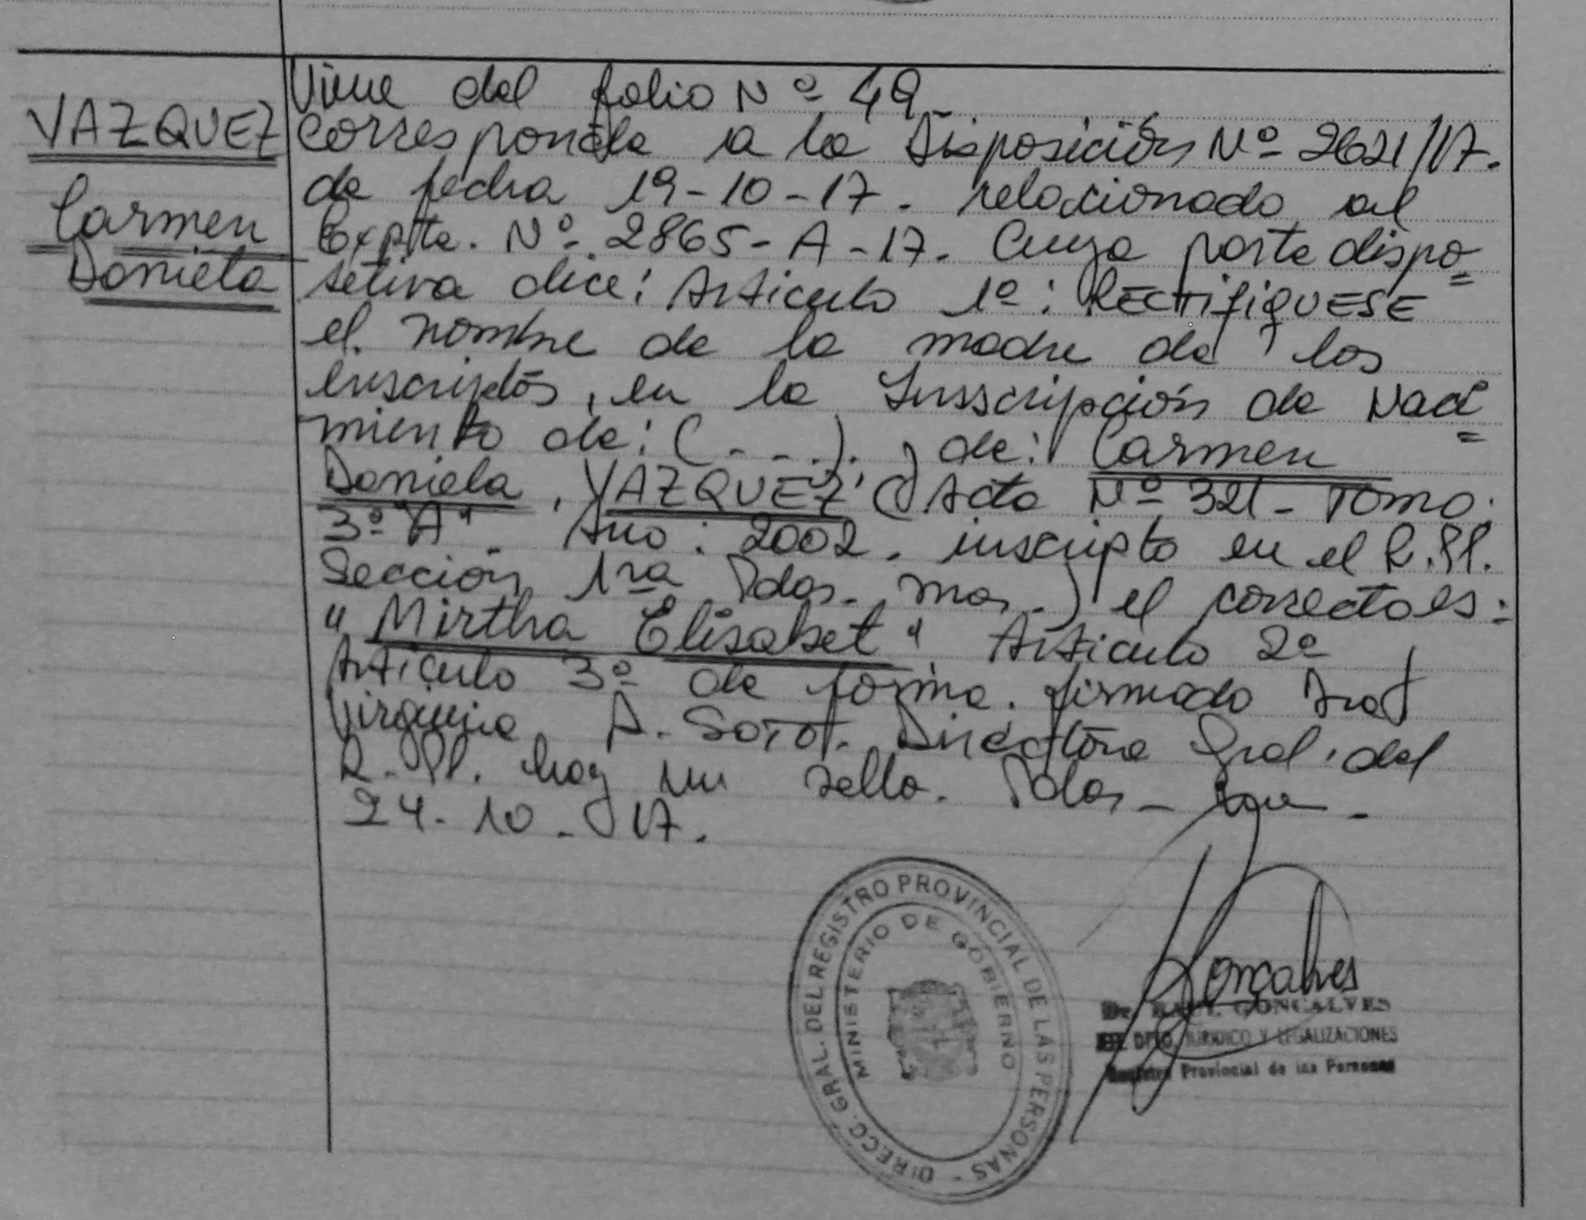 VAZQUEZ
Carmen
Daniela
Viene del folio Nº 49.
Corresponde a la Disposición Nº 2621/17.
de fecha 19-10-17. relacionado al
Expte. Nº 2865-A-17. Cuya parte dispo=
sitiva dice: Articulo 1º: RECTIFIQUESE
el nombre de la madre de los
inscriptos, en la Insscripción de Naci=
miento de: (---). , de: Carmen
Daniela, VAZQUEZ (Acta Nº 321- Tomo:
3º "A". Año: 2002. inscripto en el R.PP.
Sección 1ra Pdas. Mnes.) el correcto es:
"Mirtha Elisabet" Articulo 2º,
Articulo 3º de forma. firmado
Virginia A. Soto. Directora Gral. del
R.PP. hay un sello. Pdas-
24-10-17.
Gonçalves
Dr. RAUL GONCALVES
DPTO. JURIDICO Y LEGALIZACIONES
Registro Provincial de las Personas
DIRECC. GRAL. DEL REGISTRO PROVINCIAL DE LAS PERSONAS -
MINISTERIO DE GOBIERNO